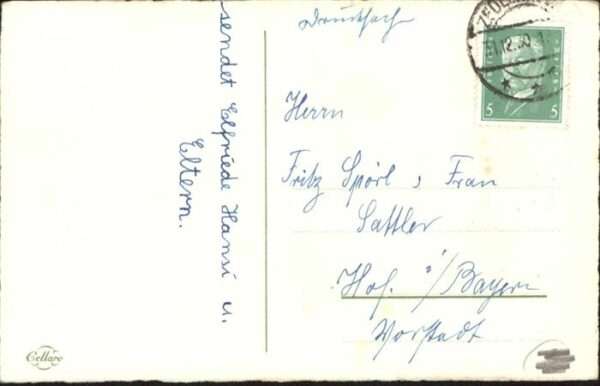 sendet Elfriede Hansi u.
Eltern.
Drucksach
Herrn
Fritz Spörl, Frau
Sattler
Hof i/Bayern
Vorstadt
31.12.30
5 5
Cellaro